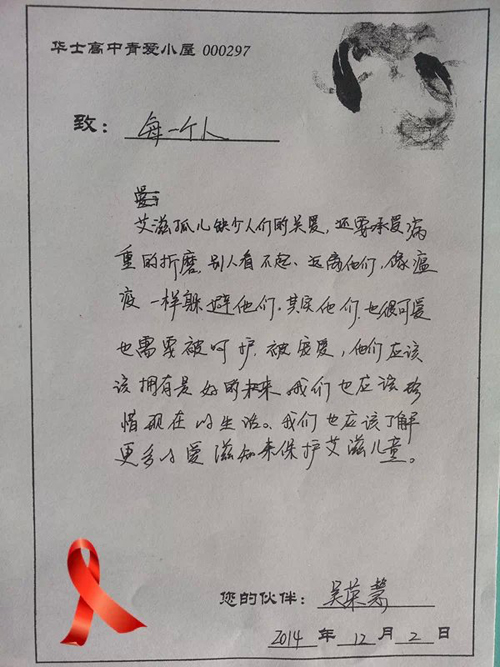 华士高中青爱小屋 000297
致: 每一个人
艾滋孤儿缺少人们的关爱,还要承受病
重的折磨,别人看不起、远离他们,像瘟
疫一样躲避他们.其实他们,也很可爱
也需要被呵护,被宠爱,他们应该
该拥有是好的未来.我们也应该珍
惜现在的生活。我们也应该了解
更多的爱滋知来保护艾滋儿童。
您的伙伴: 吴荣
2014 年 12 月 2 日